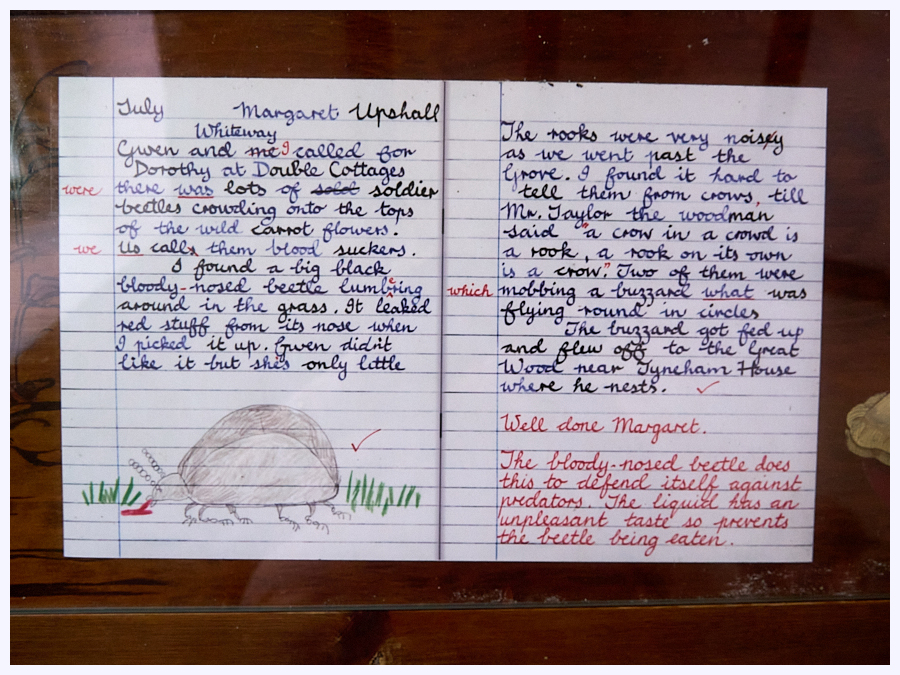 July Margaret Upshall
Whiteway
Gwen and me I called for
Dorothy at Double Cottages
were there was lots of soldier
beetles crowding onto the tops
of the wild carrot flowers.
we Us calls them blood suckers.
I found a big black
bloody-nosed beetle lumbering
around in the grass. It leaked
red stuff from its nose when
I picked it up. Gwen didn't
like it but she's only little
The rooks were very noisey
as we went past the
Grove. I found it hard to
tell them from crows, till
Mr. Taylor the woodman
said "a crow in a crowd is
a rook, a rook on its own
is a crow." Two of them were
which mobbing a buzzard what was
flying round in circles
The buzzard got fed up
and flew off to the Great
Wood near Tyneham House
where he nests.
Well done Margaret.
The bloody-nosed beetle does
this to defend itself against
predators. The liquid has an
unpleasant taste so prevents
the beetle being eaten.